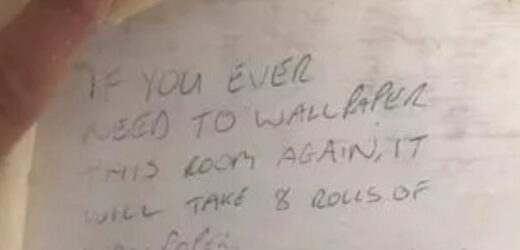 IF YOU EVER
NEED TO WALLPAPER
THIS ROOM AGAIN, IT
WILL TAKE 8 ROLLS OF
WALLPAPER.